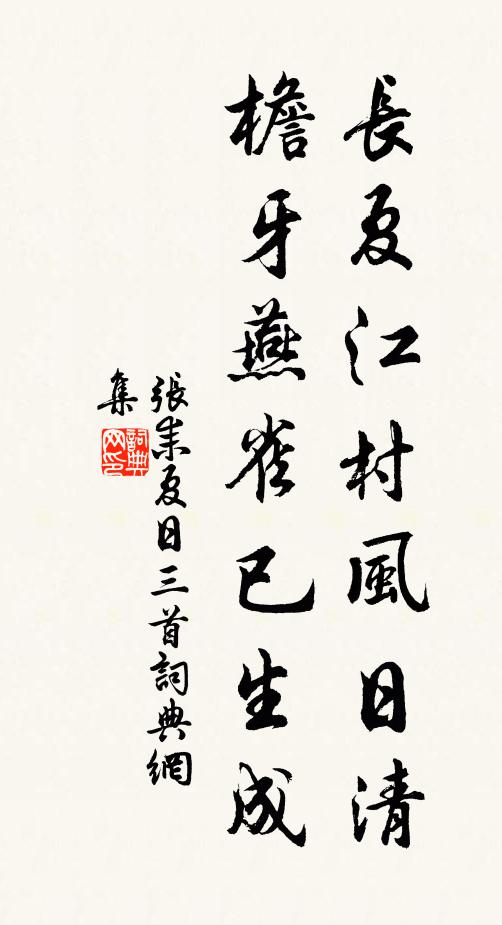 長夏江村風日清
檐牙燕雀已生成
張耒夏日三首詞典網
集
詞典網印